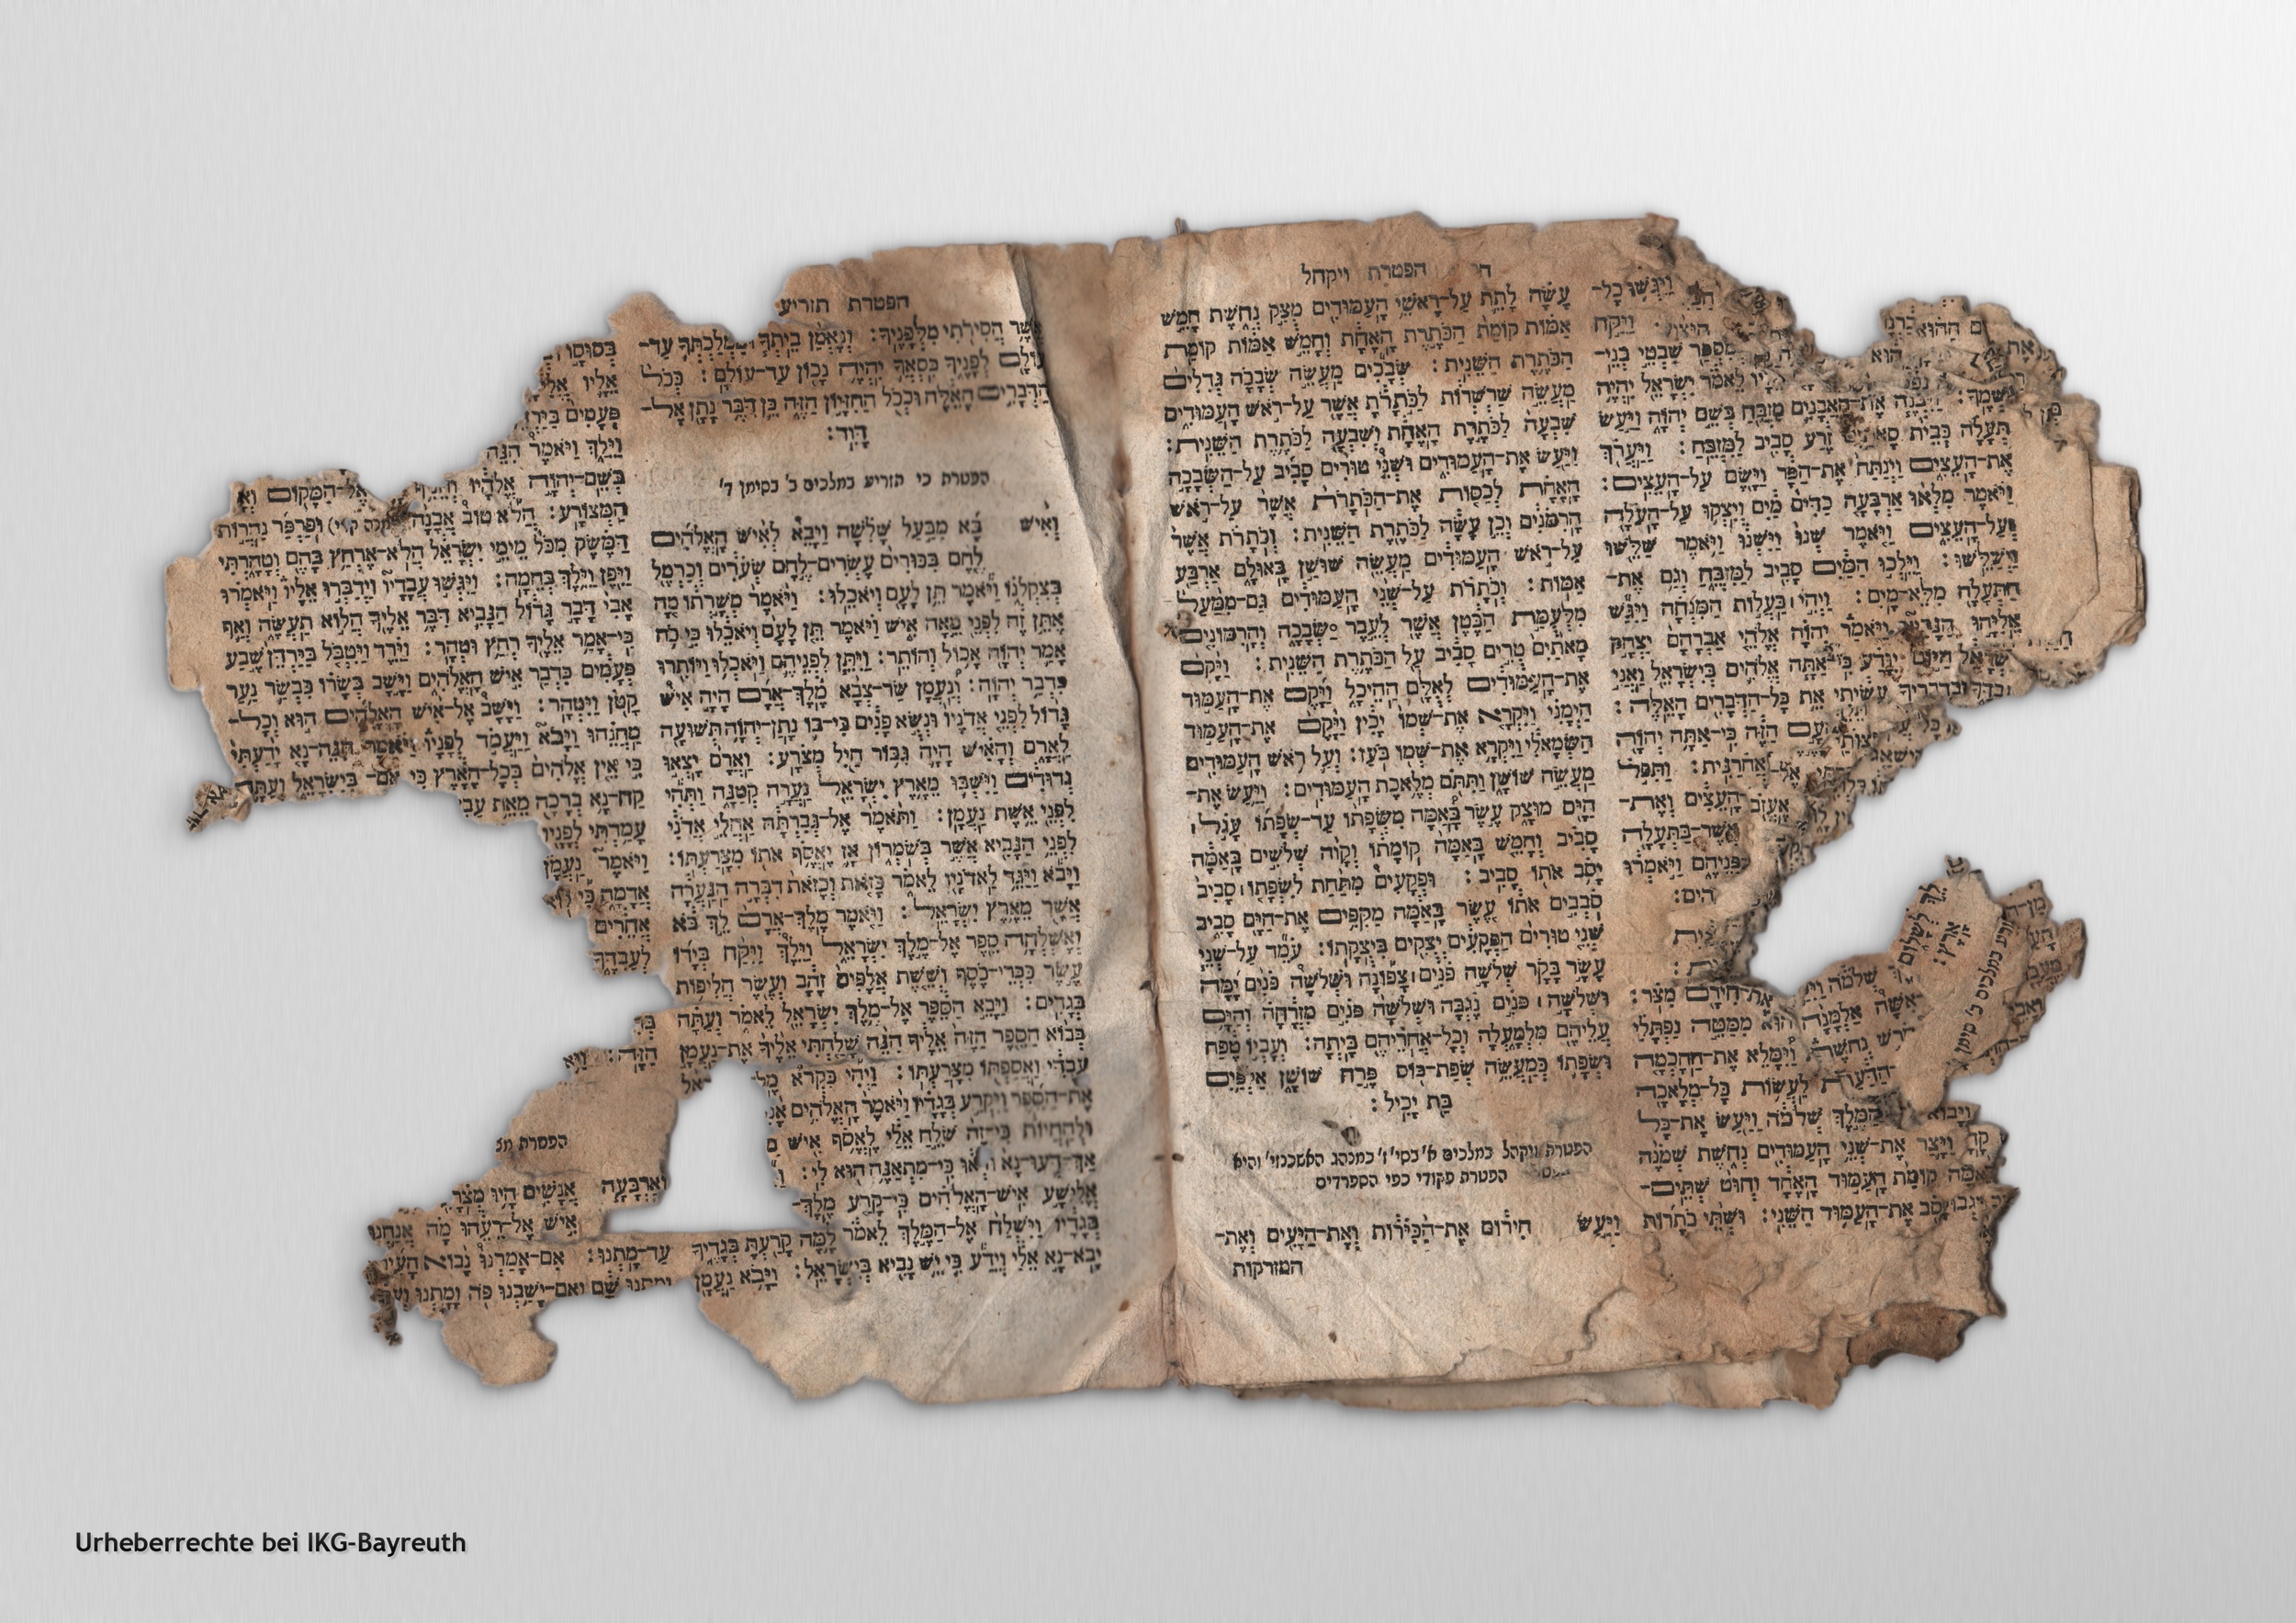 הפטרת ויקהל
וַיִּגְּשׁוּ כָל־
וַיִּקַּח
מִסְפַּר שִׁבְטֵי בְנֵי־
לֵאמֹר יִשְׂרָאֵל יִהְיֶה
שְׁמֶךָ: וַיִּבְנֶה אֶת־הָאֲבָנִים מִזְבֵּחַ בְּשֵׁם יְהוָה וַיַּעַשׂ
תְּעָלָה כְּבֵית סָאתַיִם זֶרַע סָבִיב לַמִּזְבֵּחַ: וַיַּעֲרֹךְ
אֶת־הָעֵצִים וַיְנַתַּח אֶת־הַפָּר וַיָּשֶׂם עַל־הָעֵצִים:
וַיֹּאמֶר מִלְאוּ אַרְבָּעָה כַדִּים מַיִם וְיִצְקוּ עַל־הָעֹלָה
וְעַל־הָעֵצִים וַיֹּאמֶר שְׁנוּ וַיִּשְׁנוּ וַיֹּאמֶר שַׁלֵּשׁוּ
וַיְשַׁלֵּשׁוּ: וַיֵּלְכוּ הַמַּיִם סָבִיב לַמִּזְבֵּחַ וְגַם אֶת־
הַתְּעָלָה מִלֵּא־מָיִם: וַיְהִי בַּעֲלוֹת הַמִּנְחָה וַיִּגַּשׁ
אֵלִיָּהוּ הַנָּבִיא וַיֹּאמַר יְהוָה אֱלֹהֵי אַבְרָהָם יִצְחָק
הַיּוֹם יִוָּדַע כִּי־אַתָּה אֱלֹהִים בְּיִשְׂרָאֵל וַאֲנִי
וּבִדְבָרֶיךָ עָשִׂיתִי אֵת כָּל־הַדְּבָרִים הָאֵלֶּה:
הָעָם הַזֶּה כִּי־אַתָּה יְהוָה
אֲחֹרַנִּית: וַתִּפֹּל
הָעֵצִים וְאֶת־
אֲשֶׁר־בַּתְּעָלָה
פְּנֵיהֶם וַיֹּאמְרוּ
אֶת־חִירָם מִצֹּר:
אִשָּׁה אַלְמָנָה הוּא מִמַּטֵּה נַפְתָּלִי
חֹרֵשׁ נְחֹשֶׁת וַיִּמָּלֵא אֶת־הַחָכְמָה
הַדַּעַת לַעֲשׂוֹת כָּל־מְלָאכָה
וַיָּבוֹא הַמֶּלֶךְ שְׁלֹמֹה וַיַּעַשׂ אֶת־כָּל
וַיָּצַר אֶת־שְׁנֵי הָעַמּוּדִים נְחֹשֶׁת שְׁמֹנֶה
אַמָּה קוֹמַת הָעַמּוּד הָאֶחָד וְחוּט שְׁתֵּים־
יָסֹב אֶת־הָעַמּוּד הַשֵּׁנִי: וּשְׁתֵּי כֹתָרוֹת
עָשָׂה לָתֵת עַל־רָאשֵׁי הָעַמּוּדִים מֻצַק נְחֹשֶׁת חָמֵשׁ
אַמּוֹת קוֹמַת הַכֹּתֶרֶת הָאֶחָת וְחָמֵשׁ אַמּוֹת קוֹמַת
הַכֹּתֶרֶת הַשֵּׁנִית: שְׂבָכִים מַעֲשֵׂה שְׂבָכָה גְּדִלִים
מַעֲשֵׂה שַׁרְשְׁרוֹת לַכֹּתָרֹת אֲשֶׁר עַל־רֹאשׁ הָעַמּוּדִים
שִׁבְעָה לַכֹּתֶרֶת הָאֶחָת וְשִׁבְעָה לַכֹּתֶרֶת הַשֵּׁנִית:
וַיַּעַשׂ אֶת־הָעַמּוּדִים וּשְׁנֵי טוּרִים סָבִיב עַל־הַשְּׂבָכָה
הָאֶחָת לְכַסּוֹת אֶת־הַכֹּתָרֹת אֲשֶׁר עַל־רֹאשׁ
הָרִמֹּנִים וְכֵן עָשָׂה לַכֹּתֶרֶת הַשֵּׁנִית: וְכֹתָרֹת אֲשֶׁר
עַל־רֹאשׁ הָעַמּוּדִים מַעֲשֵׂה שׁוּשַׁן בָּאוּלָם אַרְבַּע
אַמּוֹת: וְכֹתָרֹת עַל־שְׁנֵי הָעַמּוּדִים גַּם־מִמַּעַל
מִלְּעֻמַּת הַבֶּטֶן אֲשֶׁר לְעֵבֶר שְׂבָכָה וְהָרִמּוֹנִים
מָאתַיִם טֻרִים סָבִיב עַל הַכֹּתֶרֶת הַשֵּׁנִית: וַיָּקֶם
אֶת־הָעַמּוּדִים לְאֻלָם הַהֵיכָל וַיָּקֶם אֶת־הָעַמּוּד
הַיְמָנִי וַיִּקְרָא אֶת־שְׁמוֹ יָכִין וַיָּקֶם אֶת־הָעַמּוּד
הַשְּׂמָאלִי וַיִּקְרָא אֶת־שְׁמוֹ בֹּעַז: וְעַל רֹאשׁ הָעַמּוּדִים
מַעֲשֵׂה שׁוֹשָׁן וַתִּתֹּם מְלֶאכֶת הָעַמּוּדִים: וַיַּעַשׂ אֶת־
הַיָּם מוּצָק עֶשֶׂר בָּאַמָּה מִשְּׂפָתוֹ עַד־שְׂפָתוֹ עָגֹל
סָבִיב וְחָמֵשׁ בָּאַמָּה קוֹמָתוֹ וְקָוה שְׁלֹשִׁים בָּאַמָּה
יָסֹב אֹתוֹ סָבִיב: וּפְקָעִים מִתַּחַת לִשְׂפָתוֹ סָבִיב
סֹבְבִים אֹתוֹ עֶשֶׂר בָּאַמָּה מַקִּפִים אֶת־הַיָּם סָבִיב
שְׁנֵי טוּרִים הַפְּקָעִים יְצֻקִים בִּיצֻקָתוֹ: עֹמֵד עַל־שְׁנֵי
עָשָׂר בָּקָר שְׁלֹשָׁה פֹנִים צָפוֹנָה וּשְׁלֹשָׁה פֹנִים יָמָּה
וּשְׁלֹשָׁה פֹּנִים נֶגְבָּה וּשְׁלֹשָׁה פֹּנִים מִזְרָחָה וְהַיָּם
עֲלֵיהֶם מִלְמָעְלָה וְכָל־אֲחֹרֵיהֶם בָּיְתָה: וְעָבְיוֹ טֶפַח
וּשְׂפָתוֹ כְּמַעֲשֵׂה שְׂפַת־כּוֹס פֶּרַח שׁוֹשָׁן אַלְפַּיִם
בַּת יָכִיל:
הפטרת ויקהל במלכים א' בסי' ז' כמנהג האשכנזי' והיא
הפטרת פקודי כפי הספרדים
וַיַּעַשׂ חִירוֹם אֶת־הַכִּיֹּרוֹת וְאֶת־הַיָּעִים וְאֶת־
המזרקות
הפטרת תזריע
אֲשֶׁר הֲסִירֹתִי מִלְּפָנֶיךָ: וְנֶאְמַן בֵּיתְךָ וּמַמְלַכְתְּךָ עַד־
עוֹלָם לְפָנֶיךָ כִּסְאֲךָ יִהְיֶה נָכוֹן עַד־עוֹלָם: כְּכֹל
הַדְּבָרִים הָאֵלֶּה וּכְכֹל הַחִזָּיוֹן הַזֶּה כֵּן דִּבֶּר נָתָן אֶל־
דָּוִד:
הפטרת כי תזריע במלכים ב' בסימן ד'
וְאִישׁ בָּא מִבַּעַל שָׁלִשָׁה וַיָּבֵא לְאִישׁ הָאֱלֹהִים
לֶחֶם בִּכּוּרִים עֶשְׂרִים־לֶחֶם שְׂעֹרִים וְכַרְמֶל
בְּצִקְלֹנוֹ וַיֹּאמֶר תֵּן לָעָם וְיֹאכֵלוּ: וַיֹּאמֶר מְשָׁרְתוֹ מָה
אֶתֵּן זֶה לִפְנֵי מֵאָה אִישׁ וַיֹּאמֶר תֵּן לָעָם וְיֹאכֵלוּ כִּי כֹה
אָמַר יְהוָה אָכוֹל וְהוֹתֵר: וַיִּתֵּן לִפְנֵיהֶם וַיֹּאכְלוּ וַיּוֹתִרוּ
כִּדְבַר יְהוָה: וְנַעֲמָן שַׂר־צְבָא מֶלֶךְ־אֲרָם הָיָה אִישׁ
גָּדוֹל לִפְנֵי אֲדֹנָיו וּנְשֻׂא פָנִים כִּי־בוֹ נָתַן־יְהוָה תְּשׁוּעָה
לַאֲרָם וְהָאִישׁ הָיָה גִּבּוֹר חַיִל מְצֹרָע: וַאֲרָם יָצְאוּ
גְדוּדִים וַיִּשְׁבּוּ מֵאֶרֶץ יִשְׂרָאֵל נַעֲרָה קְטַנָּה וַתְּהִי
לִפְנֵי אֵשֶׁת נַעֲמָן: וַתֹּאמֶר אֶל־גְּבִרְתָּהּ אַחֲלֵי אֲדֹנִי
לִפְנֵי הַנָּבִיא אֲשֶׁר בְּשֹׁמְרוֹן אָז יֶאֱסֹף אֹתוֹ מִצָּרַעְתּוֹ:
וַיָּבֹא וַיַּגֵּד לַאדֹנָיו לֵאמֹר כָּזֹאת וְכָזֹאת דִּבְּרָה הַנַּעֲרָה
אֲשֶׁר מֵאֶרֶץ יִשְׂרָאֵל: וַיֹּאמֶר מֶלֶךְ־אֲרָם לֶךְ בֹּא
וְאֶשְׁלְחָה סֵפֶר אֶל־מֶלֶךְ יִשְׂרָאֵל וַיֵּלֶךְ וַיִּקַּח בְּיָדוֹ
עֶשֶׂר כִּכְּרֵי־כֶסֶף וְשֵׁשֶׁת אֲלָפִים זָהָב וְעֶשֶׂר חֲלִיפוֹת
בְּגָדִים: וַיָּבֵא הַסֵּפֶר אֶל־מֶלֶךְ יִשְׂרָאֵל לֵאמֹר וְעַתָּה
כְּבוֹא הַסֵּפֶר הַזֶּה אֵלֶיךָ הִנֵּה שָׁלַחְתִּי אֵלֶיךָ אֶת־נַעֲמָן
עַבְדִּי וַאֲסַפְתּוֹ מִצָּרַעְתּוֹ: וַיְהִי כִּקְרֹא
אֶת־הַסֵּפֶר וַיִּקְרַע בְּגָדָיו וַיֹּאמֶר הַאֱלֹהִים
וּלְהַחֲיוֹת כִּי־זֶה שֹׁלֵחַ אֵלַי לֶאֱסֹף אִישׁ
אַךְ־דְּעוּ־נָא וּרְאוּ כִּי־מִתְאַנֶּה הוּא לִי:
אֱלִישָׁע אִישׁ־הָאֱלֹהִים כִּי־קָרַע מֶלֶךְ־
בְּגָדָיו וַיִּשְׁלַח אֶל־הַמֶּלֶךְ לֵאמֹר לָמָּה קָרַעְתָּ בְּגָדֶיךָ
יָבֹא־נָא אֵלַי וְיֵדַע כִּי יֵשׁ נָבִיא בְּיִשְׂרָאֵל: וַיָּבֹא נַעֲמָן
בְּסוּסָו
אֵלָיו
פְּעָמִים
וַיֵּלַךְ וַיֹּאמֶר הִנֵּה
בְּשֵׁם־יְהוָה אֱלֹהָיו אֶל־הַמָּקוֹם
הַמְּצֹרָע: הֲלֹא טוֹב אֲבָנָה וּפַרְפַּר נַהֲרוֹת
דַּמֶּשֶׂק מִכֹּל מֵימֵי יִשְׂרָאֵל הֲלֹא־אֶרְחַץ בָּהֶם וְטָהָרְתִּי
וַיִּפֶן וַיֵּלֶךְ בְּחֵמָה: וַיִּגְּשׁוּ עֲבָדָיו וַיְדַבְּרוּ אֵלָיו וַיֹּאמְרוּ
אָבִי דָּבָר גָּדוֹל הַנָּבִיא דִּבֶּר אֵלֶיךָ הֲלוֹא תַעֲשֶׂה וְאַף
כִּי־אָמַר אֵלֶיךָ רְחַץ וּטְהָר: וַיֵּרֶד וַיִּטְבֹּל בַּיַּרְדֵּן שֶׁבַע
פְּעָמִים כִּדְבַר אִישׁ הָאֱלֹהִים וַיָּשָׁב בְּשָׂרוֹ כִּבְשַׂר נַעַר
קָטֹן וַיִּטְהָר: וַיָּשָׁב אֶל־אִישׁ הָאֱלֹהִים הוּא וְכָל־
מַחֲנֵהוּ וַיָּבֹא וַיַּעֲמֹד לְפָנָיו וַיֹּאמֶר הִנֵּה־נָא יָדַעְתִּי
כִּי אֵין אֱלֹהִים בְּכָל־הָאָרֶץ כִּי אִם־בְּיִשְׂרָאֵל וְעַתָּה
קַח־נָא בְרָכָה מֵאֵת
עָמַדְתִּי לְפָנָיו
וַיֹּאמֶר נַעֲמָן
אֲדָמָה
אֲחֵרִים
לְעַבְדְּךָ
הַזֶּה:
הפטרת
וְאַרְבָּעָה אֲנָשִׁים הָיוּ מְצֹרָעִ
אִישׁ אֶל־רֵעֵהוּ מָה אֲנַחְנוּ
עַד־מָתְנוּ: אִם־אָמַרְנוּ נָבוֹא הָעִיר
וָמַתְנוּ שָׁם וְאִם־יָשַׁבְנוּ פֹה וָמָתְנוּ
Urheberrechte bei IKG-Bayreuth